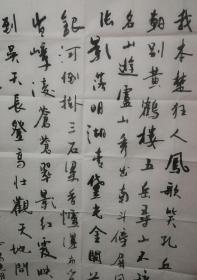 我本楚狂人鳳歌笑孔丘
朝别黄鶴樓五岳尋山不
名山遊廬山秀出南斗傍屏
張影落明湖青黛光金闕
銀河倒掛三石梁香爐瀑布
沓嶂凌蒼蒼翠影紅霞映
到吴天長登高壮觀天地間